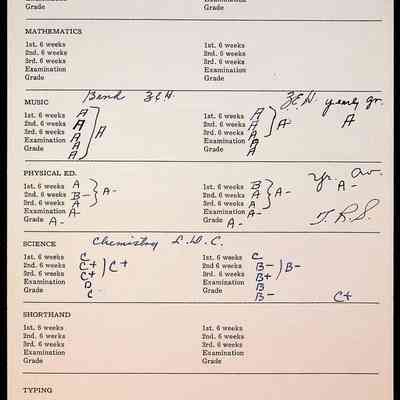 Examination
Grade Grade
MATHEMATICS
1st. 6 weeks 1st. 6 weeks
2nd. 6 weeks 2nd. 6 weeks
3rd. 6 weeks 3rd. 6 weeks
Examination Examination
Grade Grade
MUSIC Band Z.E.H. Z.E.H. yearly gr.
1st. 6 weeks A 1st. 6 weeks A
2nd. 6 weeks A A 2nd. 6 weeks A A A
3rd. 6 weeks A 3rd. 6 weeks A
Examination A Examination A
Grade A Grade A
PHYSICAL ED. Yr. Av.
1st. 6 weeks A 1st. 6 weeks B A-
2nd. 6 weeks B- A- 2nd. 6 weeks A A-
3rd. 6 weeks A 3rd. 6 weeks A
Examination A- Examination A- T.R.S.
Grade A- Grade A-
SCIENCE Chemistry L.D.C.
1st. 6 weeks C 1st. 6 weeks C
2nd. 6 weeks C+ C+ 2nd 6 weeks B- B-
3rd. 6 weeks C+ 3rd. 6 weeks B+
Examination D Examination B
Grade C- Grade B- C+
SHORTHAND
1st. 6 weeks 1st. 6 weeks
2nd. 6 weeks 2nd. 6 weeks
3rd. 6 weeks 3rd. 6 weeks
Examination Examination
Grade Grade
TYPING